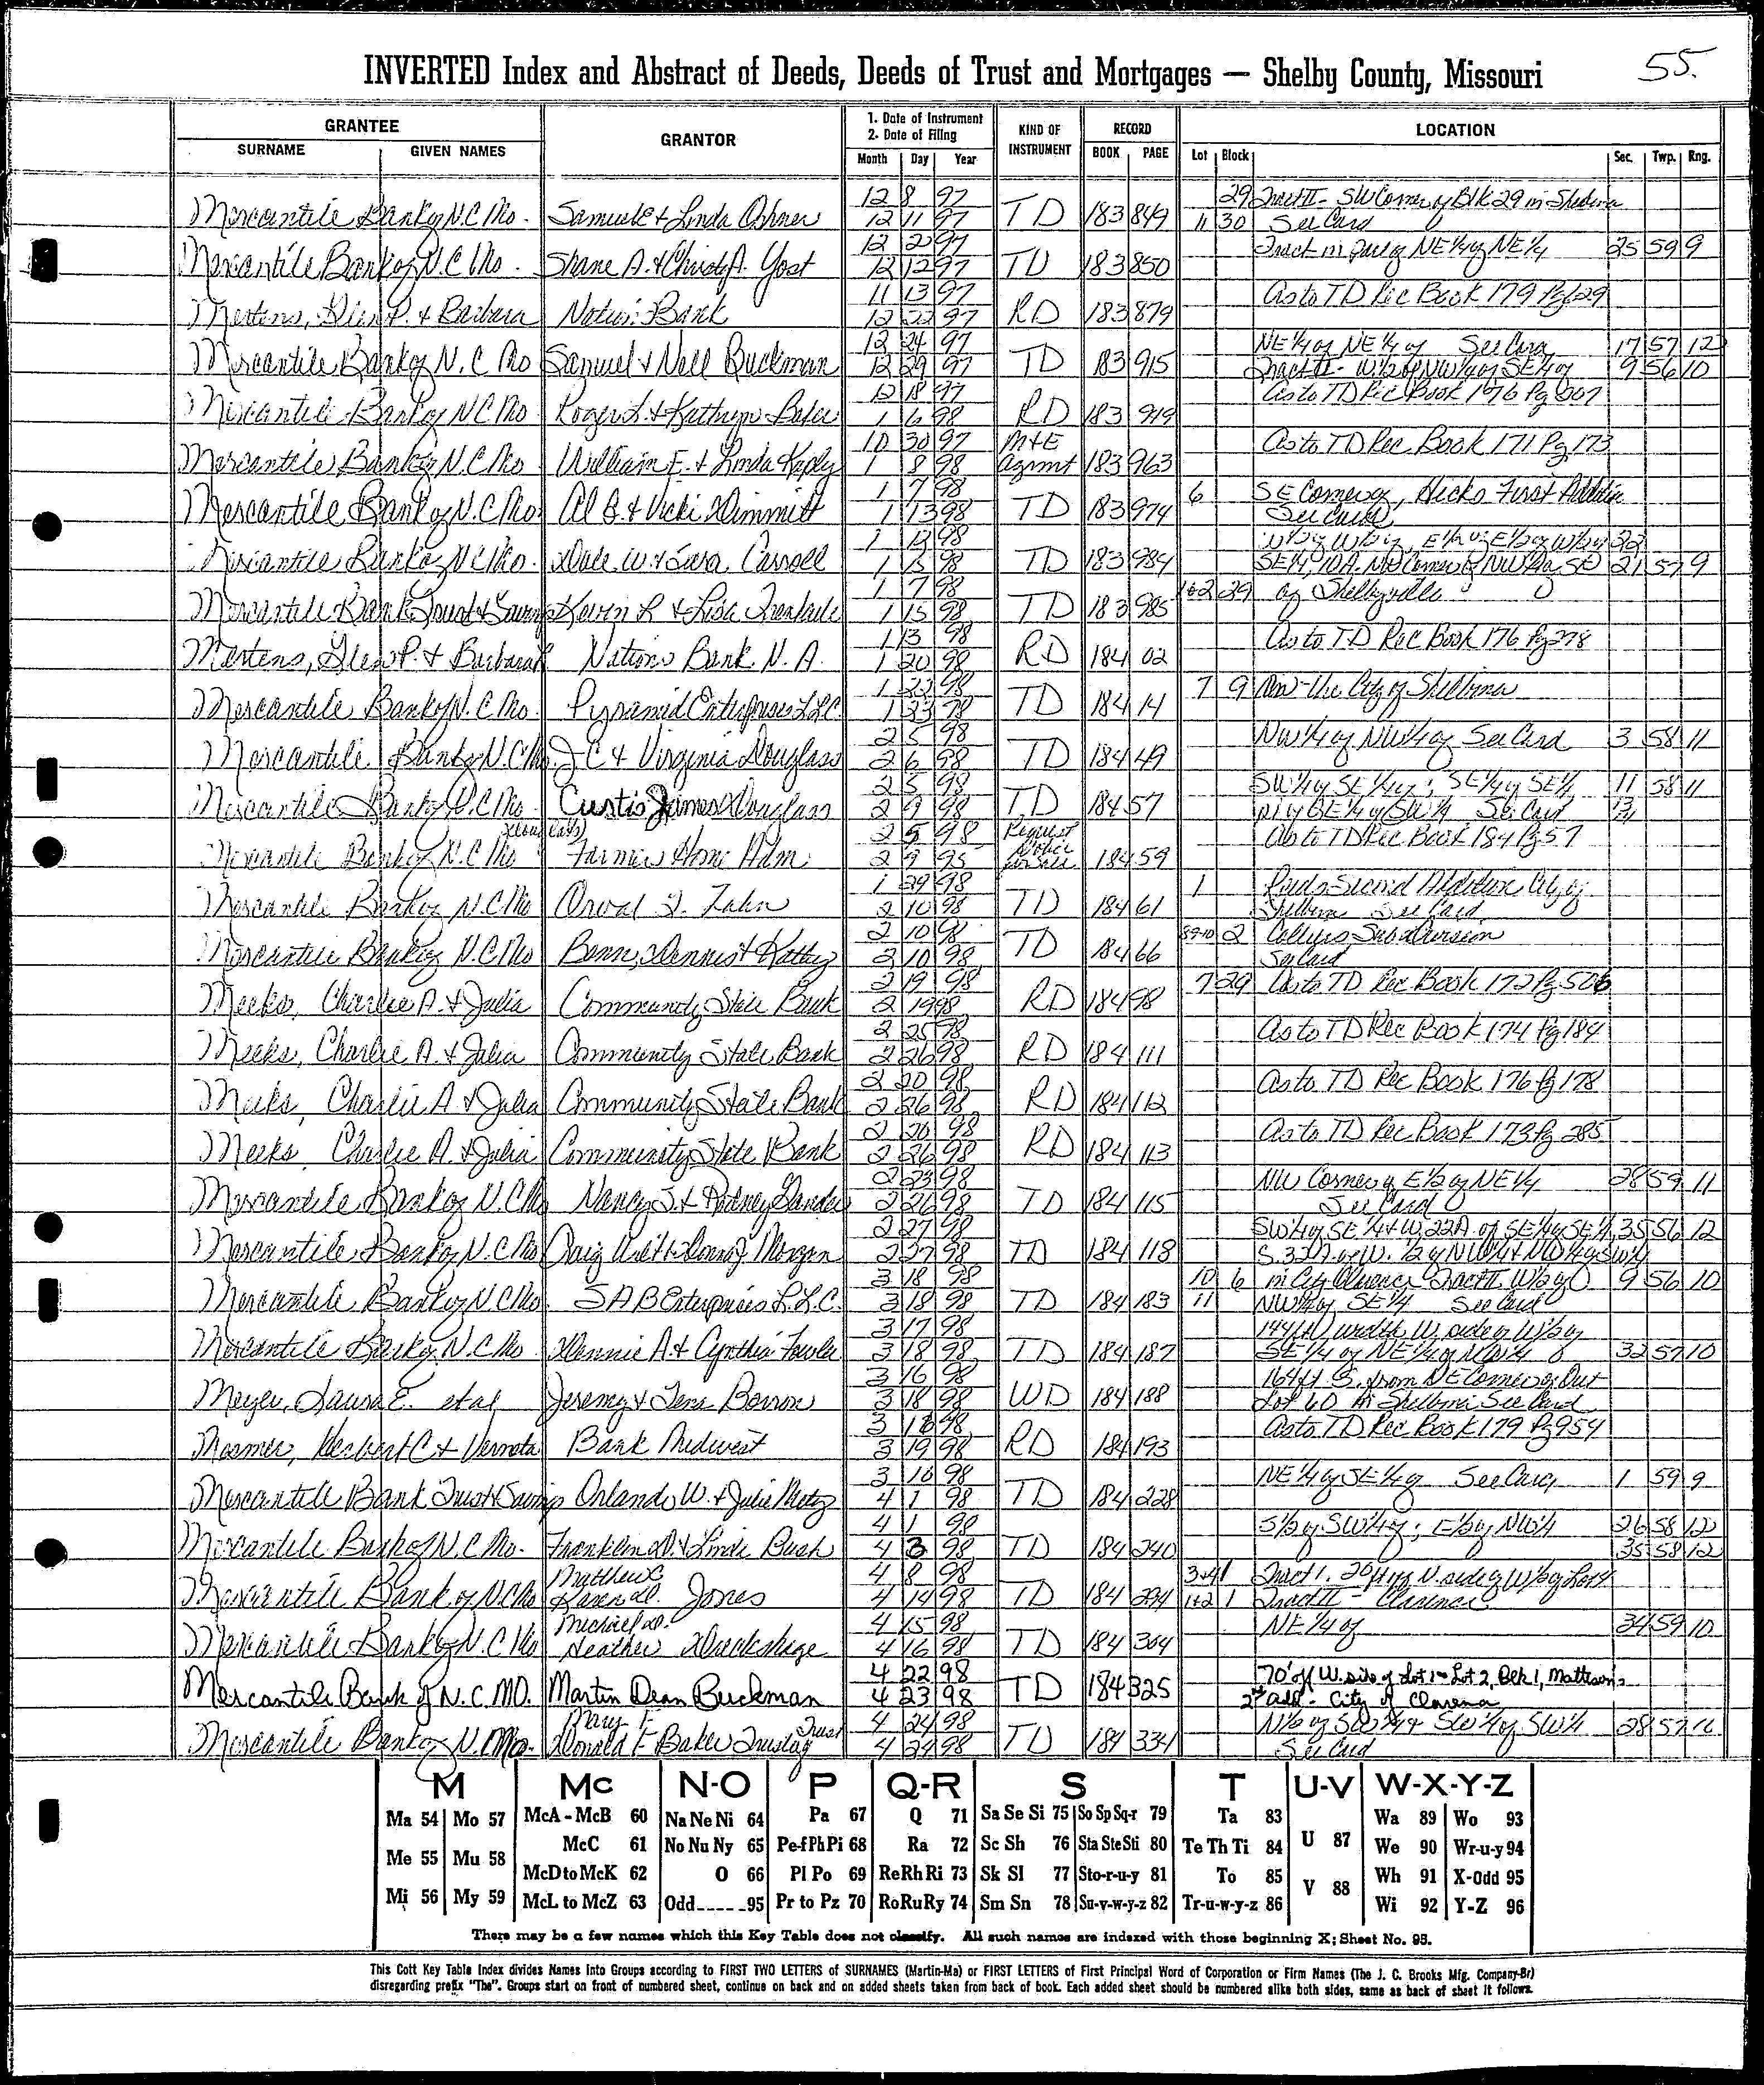 55.
INVERTED Index and Abstract of Deeds, Deeds of Trust and Mortgages — Shelby County, Missouri
GRANTEE
SURNAME GIVEN NAMES
GRANTOR
1. Date of Instrument
2. Date of Filing
Month Day Year
KIND OF INSTRUMENT
RECORD
BOOK PAGE
LOCATION
Lot Block Sec. Twp. Rng.
12 8 97 29 Tract II - SW Corner of Blk 29 in Shelbina
Mercantile Bank of N.C. Mo. Samuel E & Linda 12 11 97 TD 183 849 11 30 See Card
12 2 97 Tract in part of NE 1/4 of NE 1/4 25 59 9
Mercantile Bank of N.C Mo. Shane A. & Christy A. Yost 12 12 97 TD 183 850
11 13 97 As to TD Rec Book 179 Pg 629
Mertens, Glen P. & Barbara Nations Bank 12 22 97 RD 183 879
12 24 97 NE 1/4 of NE 1/4 of See Card 17 57 12
Mercantile Bank of N.C Mo Samuel & Nell Buckman 12 29 97 TD 183 915 Tract II - W 1/2 of NW 1/4 of SE 1/4 of 9 56 10
12 18 97 As to TD Rec Book 176 Pg
Mercantile Bank of N C Mo Roger L. & Kathryn 1 6 98 RD 183 949
10 30 97 M+E As to TD Rec. Book 171 Pg 173
Mercantile Bank of N.C. Mo William E. & Linda 1 8 98 Agrmt 183 963
1 7 98 6 SE Corner of, Hicks First Addition
Mercantile Bank of N.C. Mo. Al G. & Vicki Dimmitt 1 13 98 TD 183 974 See Card
1 13 98 22
Mercantile Bank of N C Mo. Dale W. & Sara Carroll 1 15 98 TD 183 984 SE 1/4, 10A. NE Corner of NW 1/4 SE 21 57 9
1 7 98 1&2 29 of Shelbyville
Mercantile Bank Trust & Savings Kevin L & Lisa 1 15 98 TD 183 985
1 13 98 As to TD Rec Book 176 Pg 278
Mertens, Glen P. & Barbara Nations Bank N.A. 1 20 98 RD 184 02
1 22 98 7 9 the City of Shelbina
Mercantile Bank of N.C. Mo. Pyramid Enterprises LLC 1 23 98 TD 184 14
2 5 98 NW 1/4 of NW 1/4 of See Card 3 58 11
Mercantile Bank of N.C. Mo J C & Virginia Douglass 2 6 98 TD 184 49
2 5 98 SW 1/4 of SE 1/4 of; SE 1/4 of SE 1/4 11 58 11
Mercantile Bank of N.C. Mo. Curtis James Douglass 2 9 98 TD 184 57 SE 1/4 of SW 1/4 See Card
(Douglass) 2 5 98 Request As to TD Rec Book 184 Pg 57
Mercantile Bank of N.C Mo Farmers Home Adm 2 9 98 notice for sale 184 59
1 29 98 1 Second Addition City of
Mercantile Bank of N.C. Mo Orval J. Zahn 2 10 98 TD 184 61 Shelbina See Card
2 10 98 8 9-10 2 Colliers Subdivision
Mercantile Bank of N.C Mo Benn, Dennis & Kathy 2 10 98 TD 184 66 See Card
2 19 98 7 29 As to TD Rec Book 172 Pg 506
Meeks, Charlie A. & Julia Community State Bank 2 19 98 RD 184 98
2 25 98 As to TD Rec Book 174 Pg 184
Meeks, Charlie A. & Julia Community State Bank 2 26 98 RD 184 111
2 20 98 As to TD Rec Book 176 Pg 178
Meeks, Charlie A & Julia Community State Bank 2 26 98 RD 184 112
2 20 98 As to TD Rec Book 173 Pg 285
Meeks, Charlie A. & Julia Community State Bank 2 26 98 RD 184 113
2 23 98 NW Corner of E 1/2 of NE 1/4 28 59 11
Mercantile Bank of N.C Mo Nancy S. & Rodney 2 26 98 TD 184 115 See Card
2 27 98 SW 1/4 of SE 1/4 & W. 22A. of SE 1/4 of SE 1/4 35 56 12
Mercantile Bank of N.C. Mo Craig & Donna J Morgan 2 27 98 TD 184 118
3 18 98 10 6 in City Clarence Tract II W 1/2 of 9 56 10
Mercantile Bank of N.C Mo SAB Enterprises L.L.C. 3 18 98 TD 184 183 11 NW 1/4 of SE 1/4 See Card
3 17 98 width W. side of W 1/2 of
Mercantile Bank of N.C Mo. Dennie A. & Cynthia Fowler 3 18 98 TD 184 187 SE 1/4 of NE 1/4 of NW 1/4 32 57 10
3 16 98 164 ft S. from NE Corner of Out
Meyer, Laura E. et al Jeremy & Tena Borron 3 18 98 WD 184 188 Lot 60 in Shelbina See Card
3 18 98 As to TD Rec Book 179 Pg 954
Mesmer, Herbert C & Verneta Bank Midwest 3 19 98 RD 184 193
3 10 98 NE 1/4 of SE 1/4 of See Card 1 59 9
Mercantile Bank Trust & Savings Orlando W. & Julie Metz 4 1 98 TD 184 228
4 1 98 S 1/2 of SW 1/4 of; E 1/2 of NW 1/4 26 58 12
Mercantile Bank of N.C. Mo. Franklin D. & Linda Bush 4 3 98 TD 184 240 35 58 12
Matthew 4 8 98 3&4 1 Tract 1. 20 ft of N. side of W 1/2 of Lot 4
Mercantile Bank of N.C Mo Karen D. Jones 4 14 98 TD 184 294 1&2 1 Tract II - Clarence
Michael D. 4 15 98 NE 1/4 of 34 59 10
Mercantile Bank of N.C. Mo Heather 4 16 98 TD 184 304
4 22 98 70' off W. side of Lot 1 - Lot 2, Blk 1, Mattesons
Mercantile Bank of N.C. MO. Martin Dean Buckman 4 23 98 TD 184 325 2nd Add - City of Clarence
Mary F. Trust 4 24 98 N 1/2 of SW 1/4 & SW 1/4 of SW 1/4 28 57
Mercantile Bank of N. Mo. Donald F Baker Trustee 4 24 98 TD 184 334 See Card
M Mc N-O P Q-R S T U-V W-X-Y-Z
Ma 54 Mo 57 McA - McB 60 Na Ne Ni 64 Pa 67 Q 71 Sa Se Si 75 So Sp Sq-r 79 Ta 83 U 87 Wa 89 Wo 93
McC 61 No Nu Ny 65 Pe-f Ph Pi 68 Ra 72 Sc Sh 76 Sta Ste Sti 80 Te Th Ti 84 We 90 Wr-u-y 94
Me 55 Mu 58 McD to McK 62 O 66 Pl Po 69 Re Rh Ri 73 Sk Sl 77 Sto-r-u-y 81 To 85 V 88 Wh 91 X-Odd 95
Mi 56 My 59 McL to McZ 63 Odd-----95 Pr to Pz 70 Ro Ru Ry 74 Sm Sn 78 Su-v-w-y-z 82 Tr-u-w-y-z 86 Wi 92 Y-Z 96
There may be a few names which this Key Table does not classify. All such names are indexed with those beginning X; Sheet No. 95.
This Cott Key Table Index divides Names Into Groups according to FIRST TWO LETTERS of SURNAMES (Martin-Ma) or FIRST LETTERS of First Principal Word of Corporation or Firm Names (The J. C. Brooks Mfg. Company-Br)
disregarding prefix "The". Groups start on front of numbered sheet, continue on back and on added sheets taken from back of book. Each added sheet should be numbered alike both sides, same as back of sheet it follows.